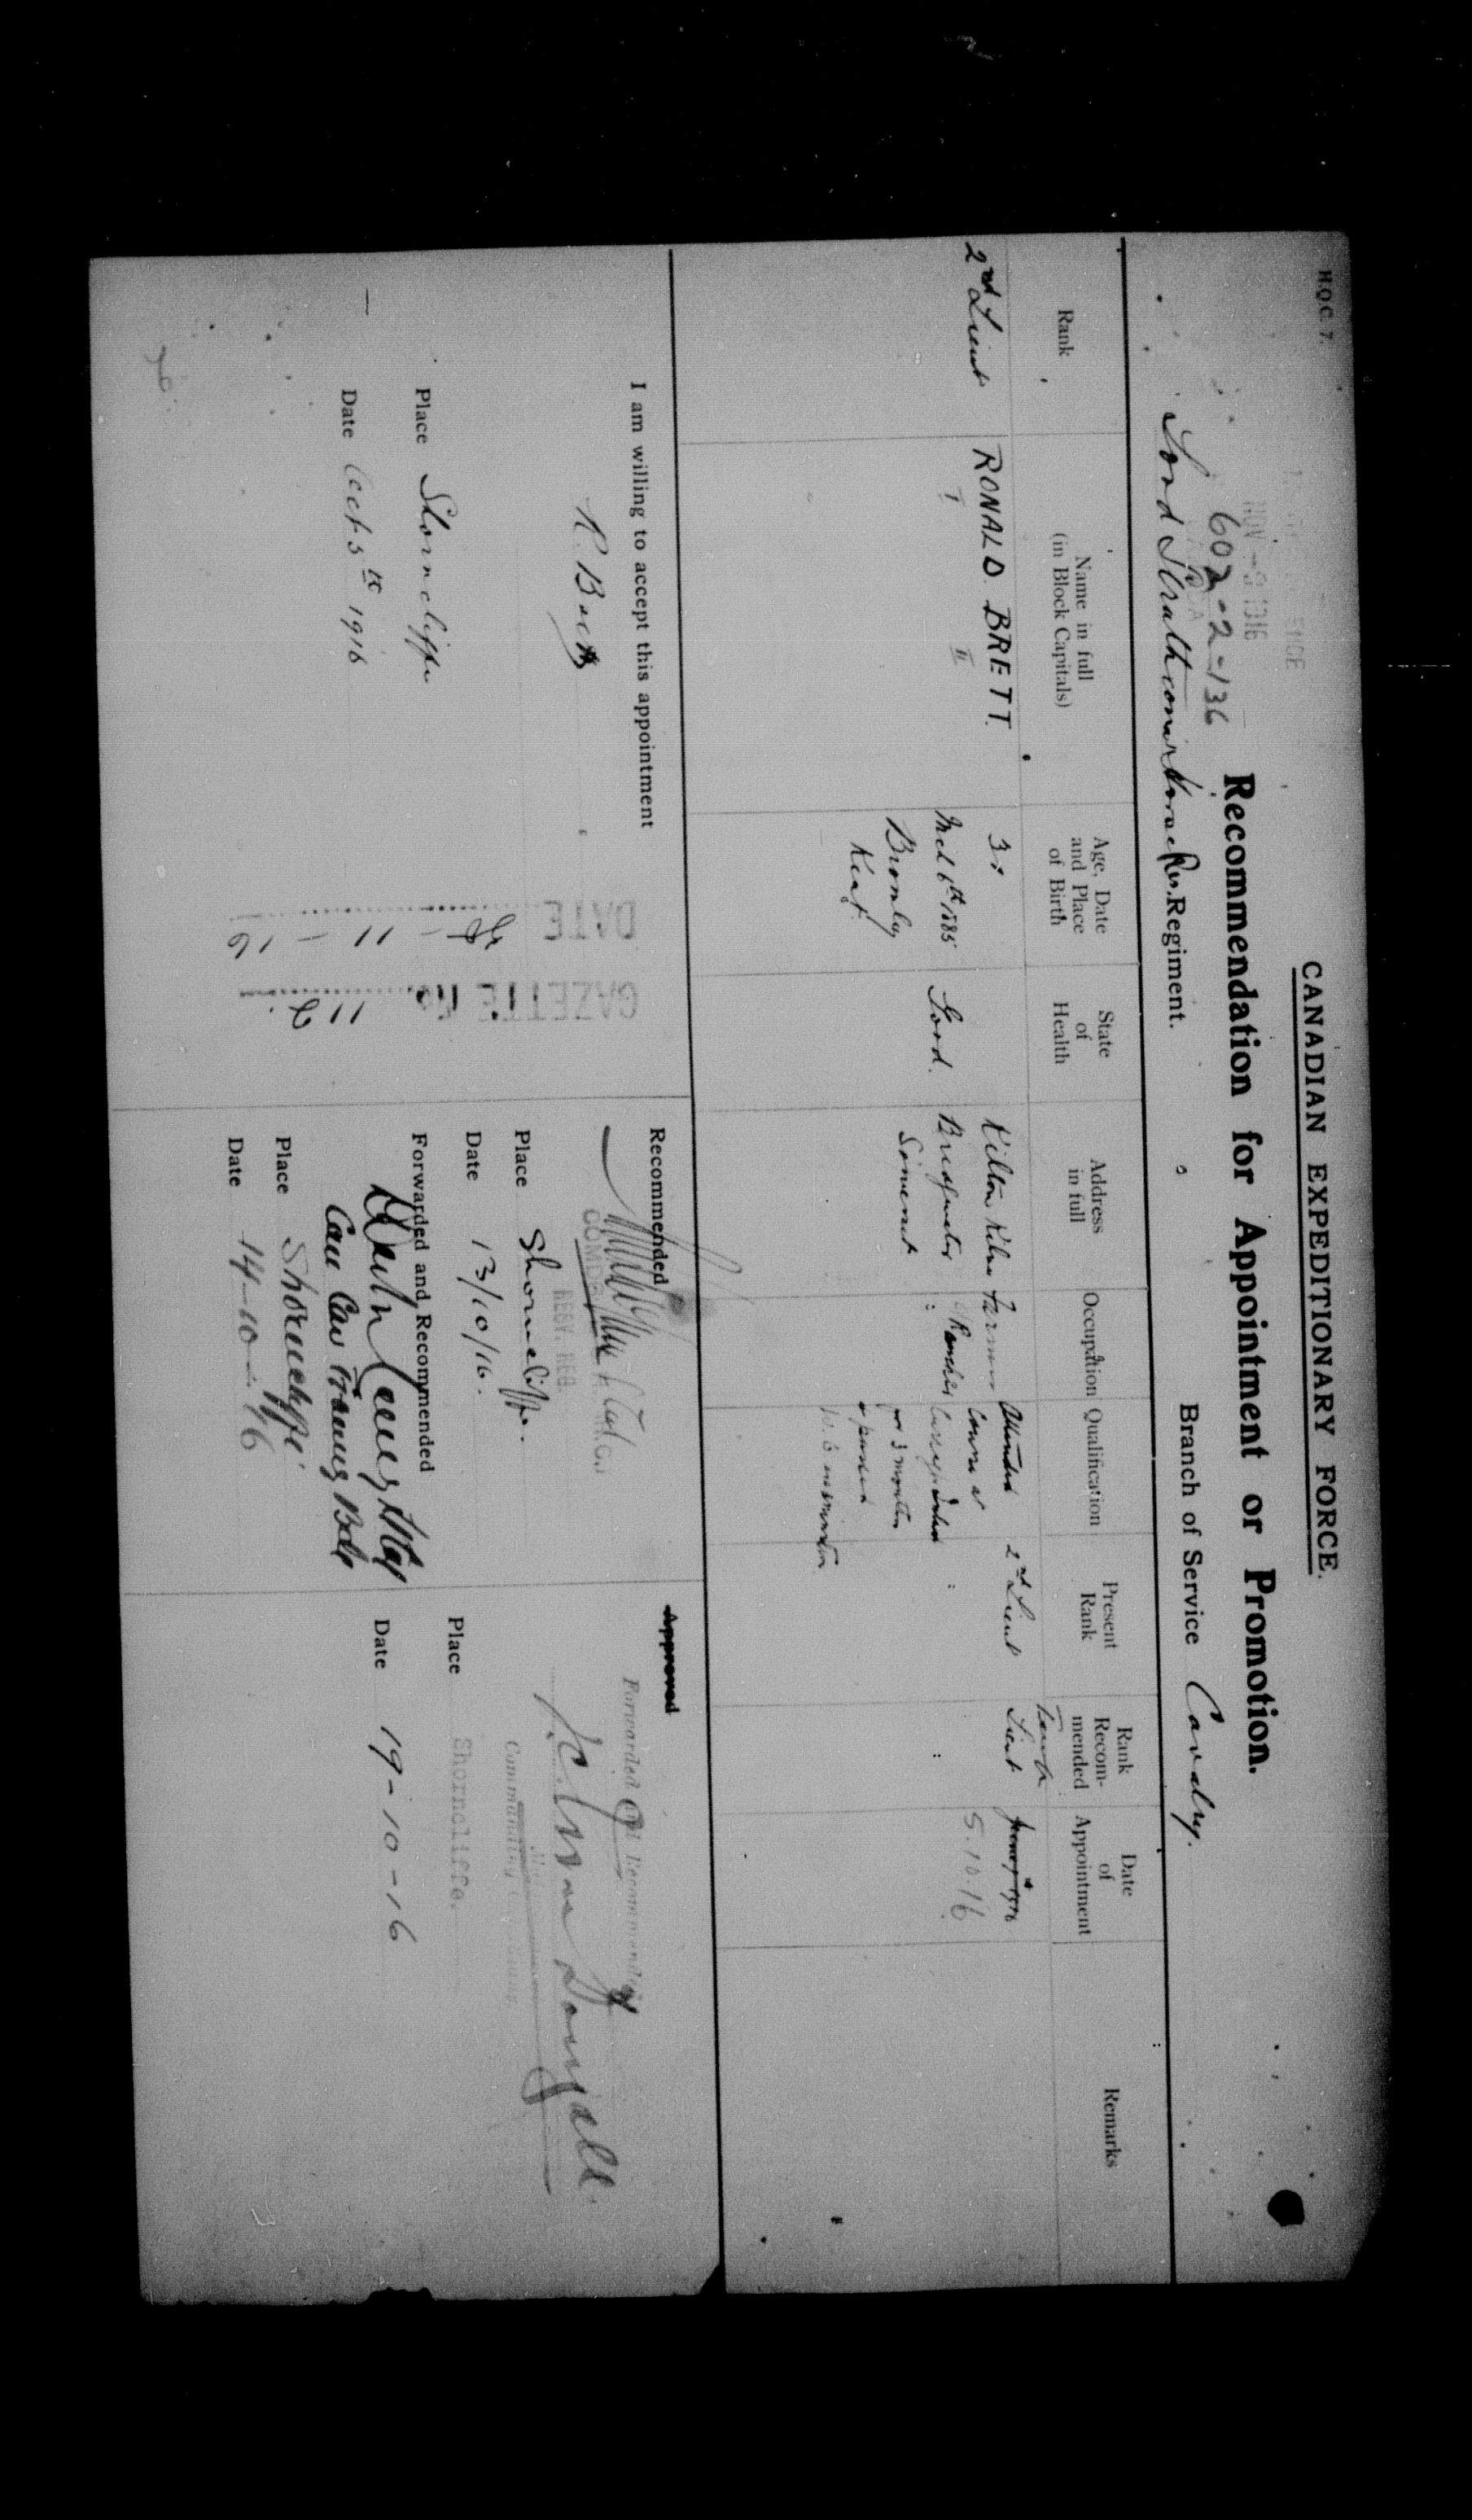 H.Q.C. 7.
CANADIAN EXPEDITIONARY FORCE.
Recommendation for Appointment or Promotion.
NOV -9 1916
602-2-136
Lord Strathconas Horse Res. Regiment.
Branch of Service Cavalry.
Rank
Name in full
(in Block Capitals)
Age, Date
and Place
of Birth
State
of
Health
Address
in full
Occupation
Qualification
Present
Rank
Rank
Recom-
mended
Date
of
Appointment
Remarks
2nd Lieut
RONALD BRETT.
I II
31
Mch 6th 1885
Bromley
Kent.
Good.
Kilton Kilve
Bridgwater
Somerset
Farmer
Rancher
Attended
Course at
for 3 months
& passed
2nd Lieut
Lieut
5.10.16
I am willing to accept this appointment
R. Brett
Place Shorncliffe
Date Oct 5th 1916
DATE
11 - 16
GAZETTE
11
Recommended
RESV. REG
Place Shorncliffe.
Date 13/10/16.
Forwarded and Recommended
Can Cav Training Bde
Place Shorncliffe
Date 14-10-16
Approved
Forwarded and Recommended
Commanding
Place Shorncliffe.
Date 19-10-16